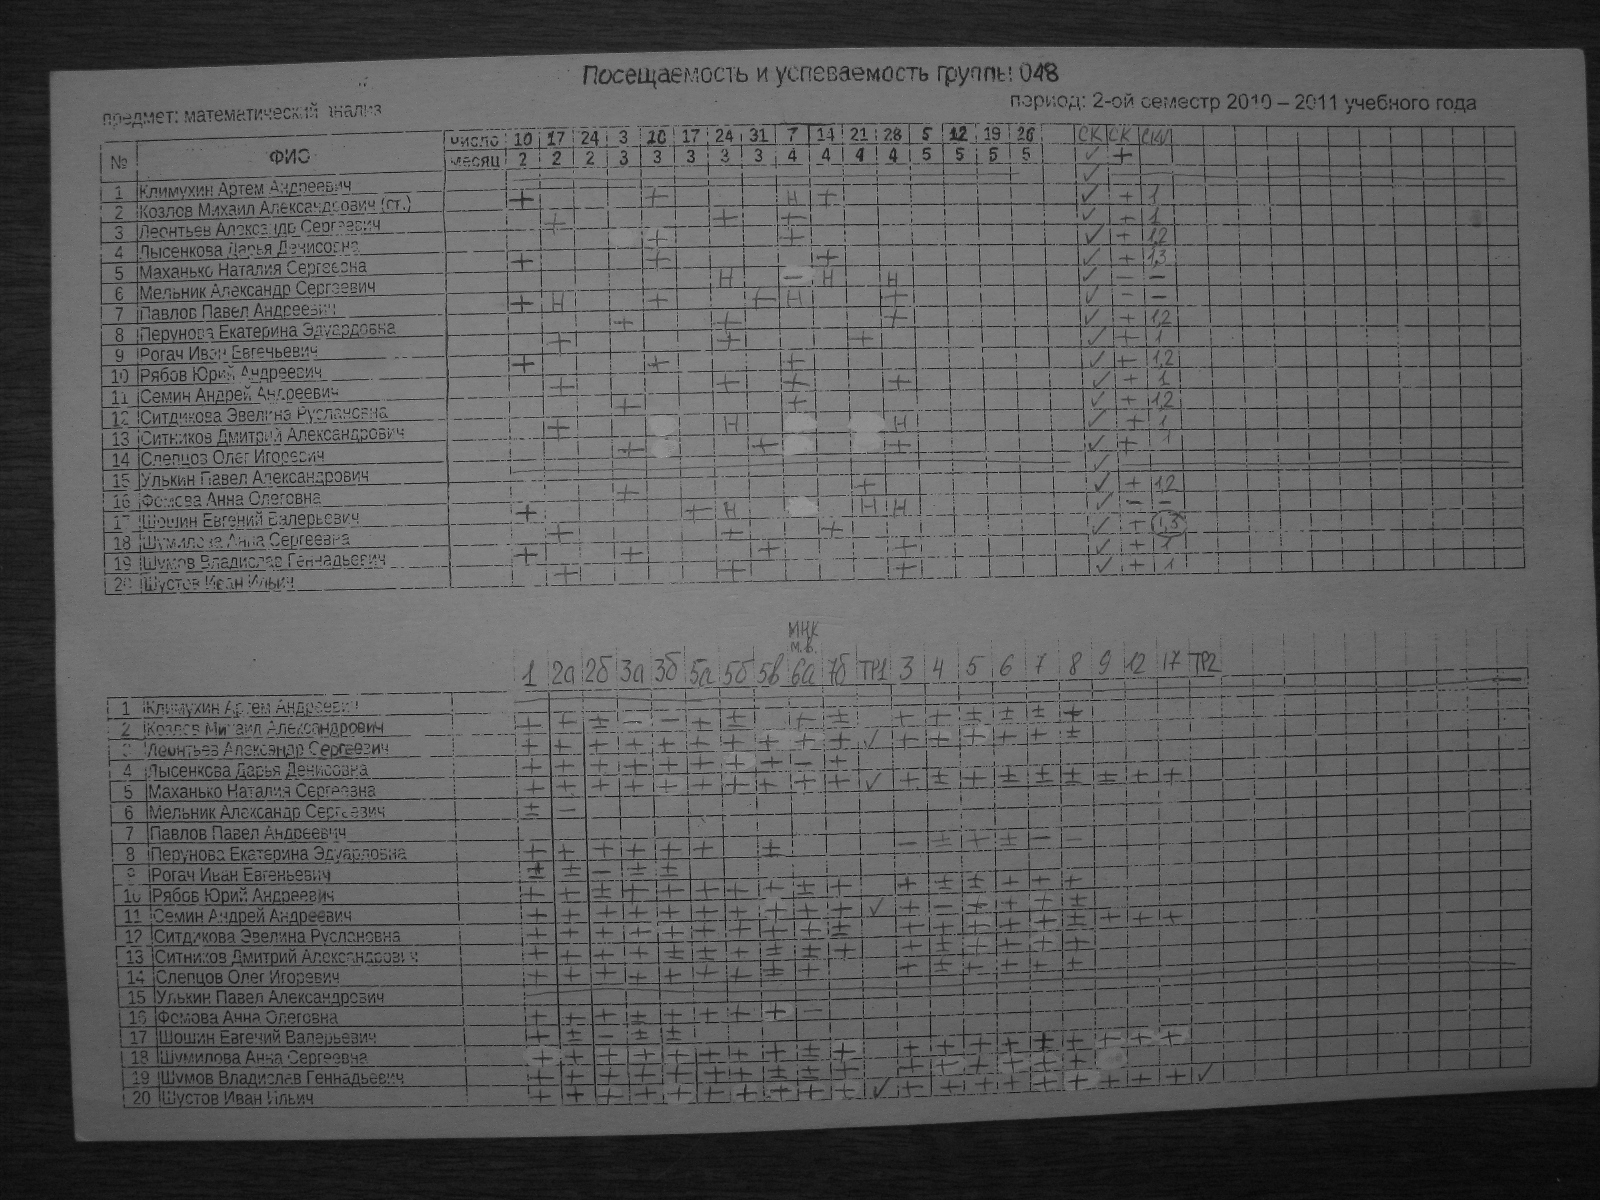 Посещаемость и успеваемость группы 048
предмет: математический анализ
период: 2-ой семестр 2010 – 2011 учебного года
№ ФИО число 10 17 24 3 10 17 24 31 7 14 21 28 5 12 19 26 СК СК СКЛ
месяц 2 2 2 3 3 3 3 3 4 4 4 4 5 5 5 5 ✓ +
1 Климухин Артем Андреевич ✓
2 Козлов Михаил Александрович (ст.) + + Н + ✓ + 1
3 Леонтьев Александр Сергеевич + + + ✓ + 1
4 Лысенкова Дарья Денисовна + + ✓ + 1,2
5 Маханько Наталия Сергеевна + + + ✓ + 1,3
6 Мельник Александр Сергеевич Н – Н Н ✓ – –
7 Павлов Павел Андреевич + Н + + Н + ✓ – –
8 Перунова Екатерина Эдуардовна + + + ✓ + 1,2
9 Рогач Иван Евгеньевич + + + ✓ + 1
10 Рябов Юрий Андреевич + + + ✓ + 1,2
11 Семин Андрей Андреевич + + + + ✓ + 1
12 Ситдикова Эвелина Руслановна + + ✓ + 1,2
13 Ситников Дмитрий Александрович + Н Н ✓ + 1
14 Слепцов Олег Игоревич + + + ✓ + 1
15 Улькин Павел Александрович ✓
16 Фомова Анна Олеговна + + ✓ + 1,2
17 Шошин Евгений Валерьевич + + Н Н Н ✓ – –
18 Шумилова Анна Сергеевна + + + ✓ + 1,3
19 Шумов Владислав Геннадьевич + + + + ✓ + 1
20 Шустов Иван Ильич + + + ✓ + 1
МНК
м.в.
1 2а 2б 3а 3б 5а 5б 5в 6а 7б ТР1 3 4 5 6 7 8 9 12 17 ТР2
1 Климухин Артем Андреевич
2 Козлов Михаил Александрович + + ± – – + ± + ± + + ± ± ± +
3 Леонтьев Александр Сергеевич + + + + + + + + + + ✓ + + + + + ±
4 Лысенкова Дарья Денисовна + + + + + + + + – +
5 Маханько Наталия Сергеевна + + + + + + + + + + ✓ + ± + ± ± ± ± + +
6 Мельник Александр Сергеевич ± –
7 Павлов Павел Андреевич – ± + ± – –
8 Перунова Екатерина Эдуардовна + + + + + + ±
9 Рогач Иван Евгеньевич ± ± – ± ±
10 Рябов Юрий Андреевич + + ± + + + + + ± + + ± ± + + +
11 Семин Андрей Андреевич + + + + + + + + + + ✓ + – + + + ±
12 Ситдикова Эвелина Руслановна + + + + + + + + + ± + + + + + ± + + +
13 Ситников Дмитрий Александрович + + + + ± + + ± + + + + ± + ± +
14 Слепцов Олег Игоревич + + + + + + + ± + + ± ± ± ± ±
15 Улькин Павел Александрович
16 Фомова Анна Олеговна + + + ± + + + + –
17 Шошин Евгений Валерьевич + ± – ± ±
18 Шумилова Анна Сергеевна + + + + + + + + ± + + + + + + + + + +
19 Шумов Владислав Геннадьевич + + + + + + + ± ± + + + + + + +
20 Шустов Иван Ильич + + + + + + + + + + ✓ + + + + + + + + + ✓